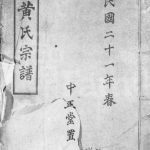 民國二十一年春
黃氏宗譜
中正堂置